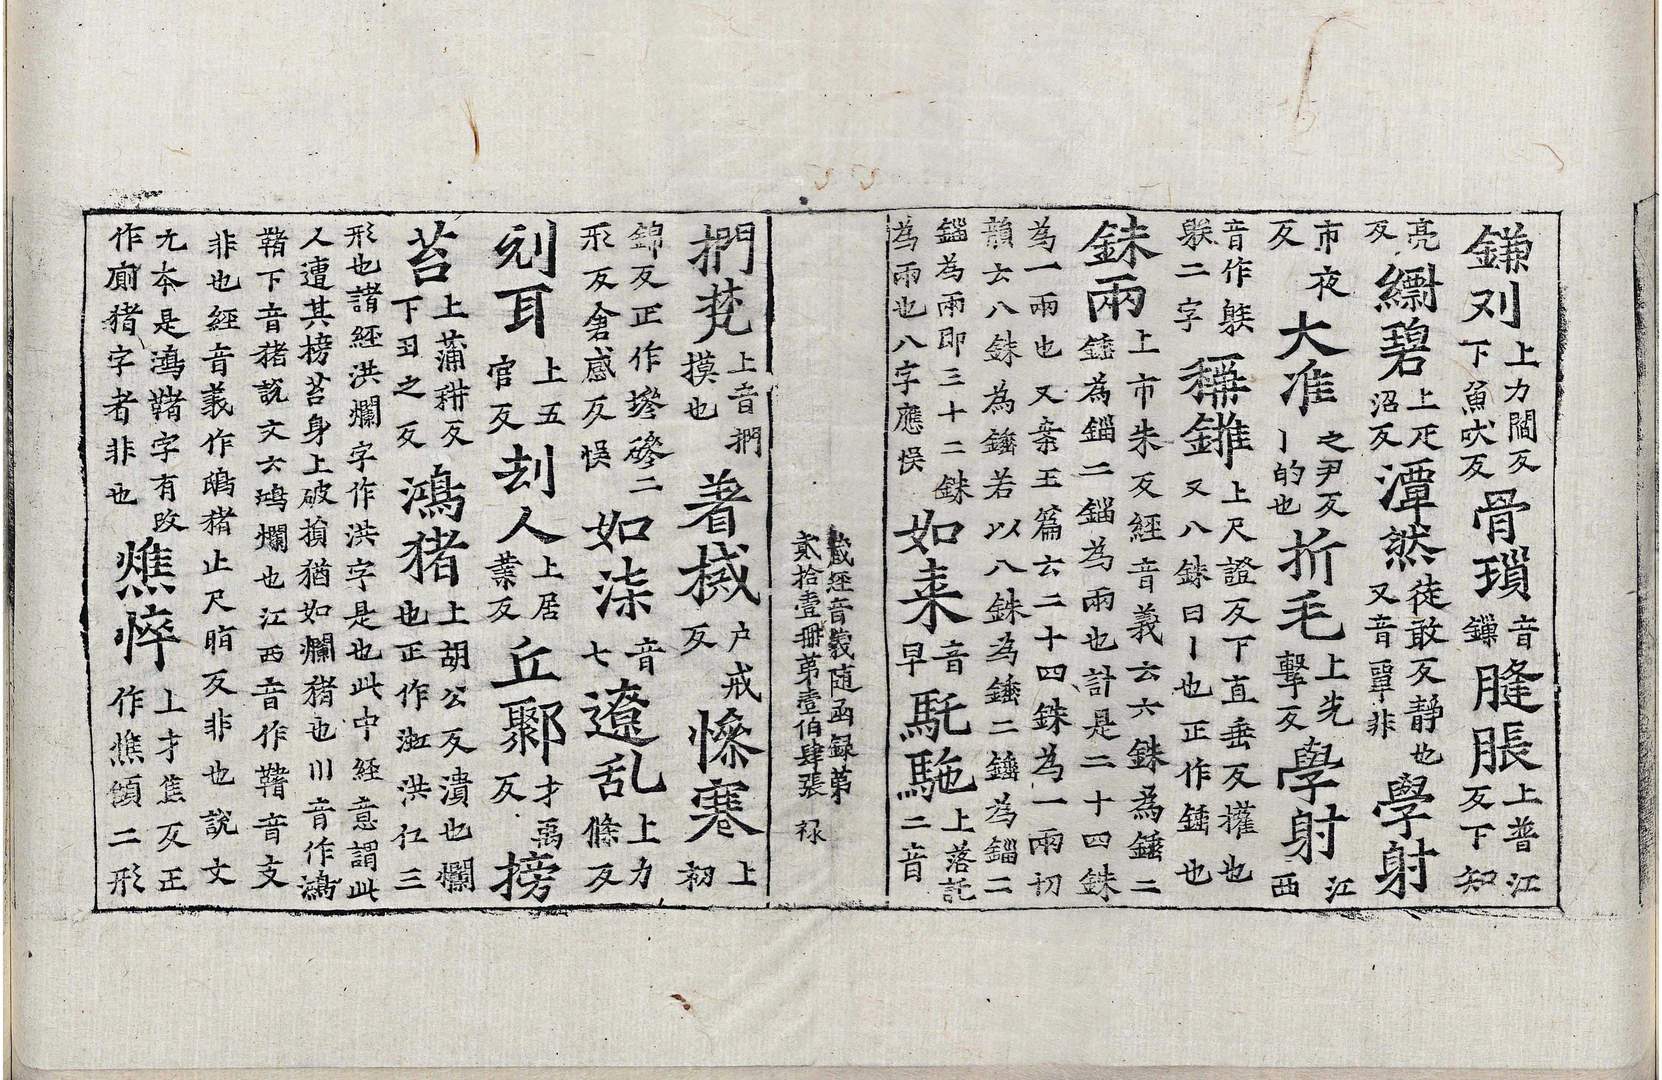 鎌刈上力閻反下魚吠反骨瑣音鏁膖脹上普江反下知
亮反碧上疋沼反潭然徒敢反静也又音覃非學射
市夜反大准之尹反丨的也折毛上先擊反學射江西
音作躲躲二字稱錐上尺證反下直垂反權也又八銖曰丨也正作錘也
銖兩上市朱反經音義云六銖為錘二錘為錙二錙為兩也計是二十四銖
為一兩也又案玉篇云二十四銖為一兩切韻云八銖為錘若以八銖為錘二錘為錙二
錙為兩即三十二銖為兩也八字應悞如来音早馲駞上落託二音
藏經音義随函録第
貳拾壹冊第壹伯肆張 禄
捫上音捫摸也著械户戒反慘寒上初
錦反正作墋磣二形反倉感反悞如柒音七遼乱上力條反
刓耳上五官反刦人上居業反丘聚才禹反搒
苔上蒲耕反下丑之反鴻猪上胡公反潰也爛也正作洪仁三
形也諸經洪爛字作洪字是也此中經意謂此人遭其搒苔身上破損猶如爛猪也川音作鴻
䐗下音猪說文云鴻爛也江西音作䐗音支非也經音義作鴟猪止尺脂反非也說文
无本是鴻䐗字有改作廁猪字者非也憔悴上才焦反正作憔顇二形